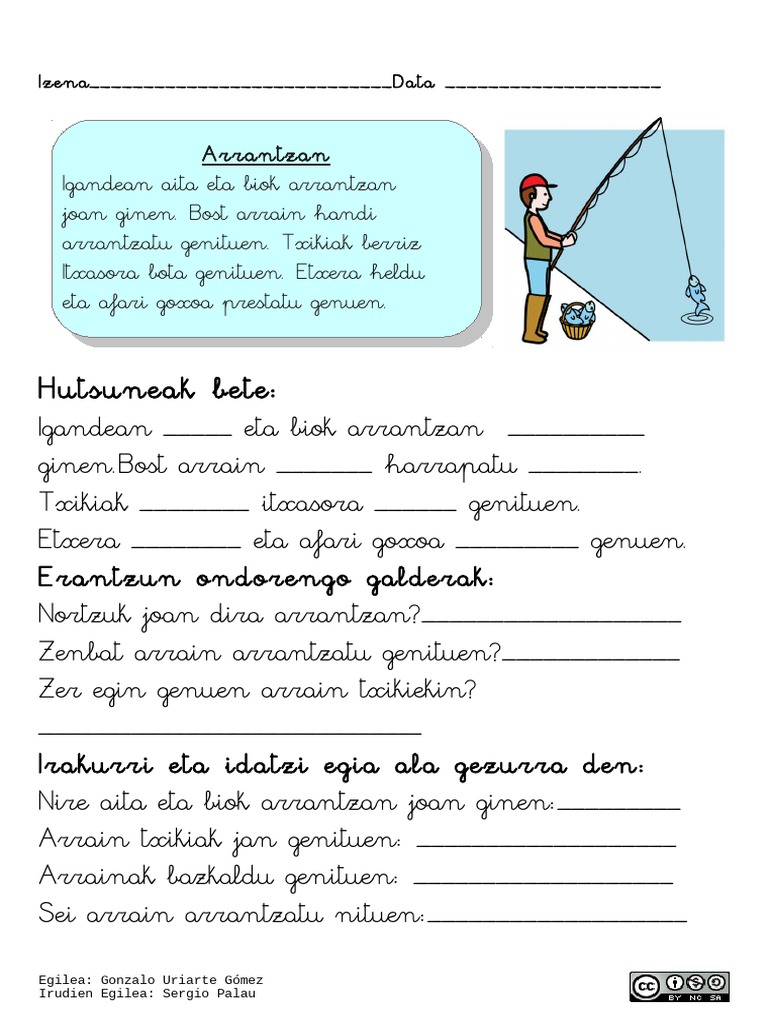 Izena____________________________Data ____________________
Arrantzan
Igandean aita eta biok arrantzan
joan ginen. Bost arrain handi
arrantzatu genituen. Txikiak berriz
Itxasora bota genituen. Etxera heldu
eta afari goxoa prestatu genuen.
Hutsuneak bete:
Igandean _____ eta biok arrantzan __________
ginen.Bost arrain _______ harrapatu ________.
Txikiak ________ itxasora ______ genituen.
Etxera ________ eta afari goxoa _________ genuen.
Erantzun ondorengo galderak:
Nortzuk joan dira arrantzan?___________________
Zenbat arrain arrantzatu genituen?_____________
Zer egin genuen arrain txikiekin?
____________________________
Irakurri eta idatzi egia ala gezurra den:
Nire aita eta biok arrantzan joan ginen:_________
Arrain txikiak jan genituen: ___________________
Arrainak bazkaldu genituen: ___________________
Sei arrain arrantzatu nituen:___________________
Egilea: Gonzalo Uriarte Gómez
Irudien Egilea: Sergio Palau
cc BY NC SA